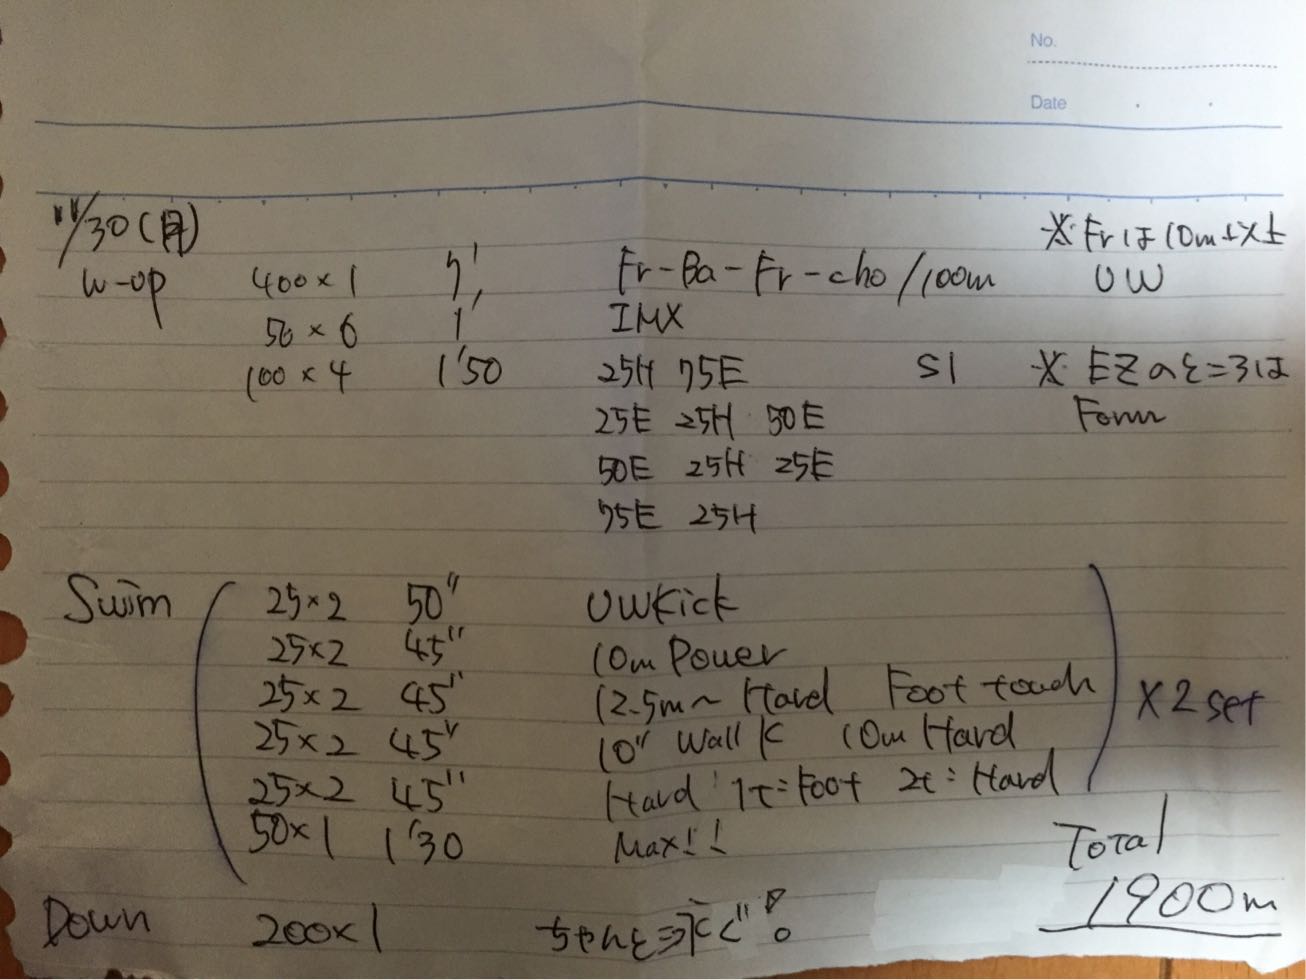 No.
Date
11/30(月)
※Frは10m以上
W-up 400×1 7' Fr-Ba-Fr-cho/100m UW
50×6 1' IMX
100×4 1'50 25H 75E S1 ※EZのところは
25E 25H 50E Form
50E 25H 25E
75E 25H
Swim 25×2 50" UWKick
25×2 45" 10m Power
25×2 45" 12.5m~ Hard Foot touch ×2set
25×2 45" 10" Wall K 10m Hard
25×2 45" Hard 1t:Foot 2t:Hard
50×1 1'30 Max!! Total
Down 200×1 ちゃんと泳ぐ!! 1900m